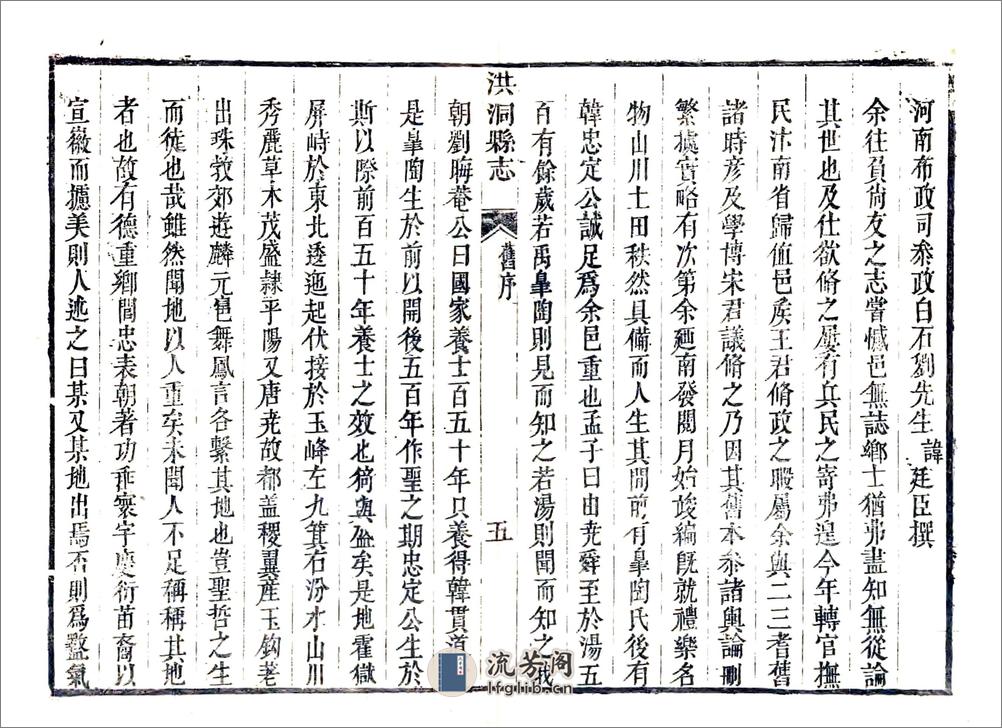 河南布政司叅政白石劉先生諱廷臣撰
余往負尚友之志嘗憾邑無誌鄉士猶弗盡知無從論
其世也及仕欲脩之屢有兵民之寄弗遑今年轉官撫
民汴南省歸値邑矦王君脩政之暇屬余與二三耆舊
諸時彦及學博宋君議脩之乃因其舊本叅諸輿論刪
繁攄實略有次第余廼南發閱月始竣編旣就禮樂名
物山川土田秩然具備而人生其間前有臯陶氏後有
韓忠定公誠足爲余邑重也孟子曰由尭舜至於湯五
百有餘歲若禹臯陶則見而知之若湯則聞而知之我
洪洞縣志
舊序
五
朝劉晦菴公曰國家養士百五十年只養得韓貫道
是臯陶生於前以開後五百年作聖之期忠定公生於
斯以際前百五十年養士之效也猗與盛矣是地霍嶽
屏峙於東北透迤起伏接於玉峰左九箕右汾水山川
秀麗草木茂盛隷乎陽又唐尭故都盖稷翼産玉鈎茖
出珠敎郊遊麟元邑舞鳳言各繫其地也豈聖哲之生
而徒也哉雖然聞地以人重矣未聞人不足稱稱其地
者也故有德重鄉閭忠表朝著功垂寰宇慶衍苗裔以
宣徽而攄美則人述之曰某又某地出焉否則爲盭氣
流芳阁
lfglib.cn